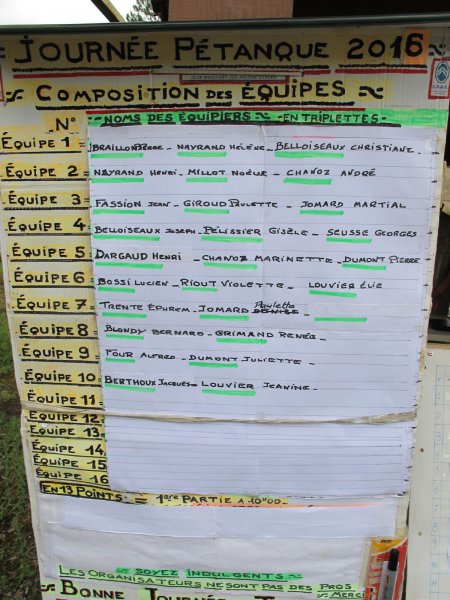 JOURNÉE PÉTANQUE 2016
COMPOSITION DES ÉQUIPES
N° NOMS DES ÉQUIPIERS - EN TRIPLETTES -
ÉQUIPE 1 = BRAILLON PIERRE - NAYRAND HÉLÈNE - BELLOISEAUX CHRISTIANE -
ÉQUIPE 2 = NAYRAND HENRI - MILLOT NOËLLE - CHANOZ ANDRÉ
ÉQUIPE 3 = FASSION JEAN - GIROUD PAULETTE - JOMARD MARTIAL
ÉQUIPE 4 = BELLOISEAUX JOSEPH - PÉLISSIER GISÈLE - SEUSSE GEORGES
ÉQUIPE 5 = DARGAUD HENRI - CHANOZ MARINETTE - DUMONT PIERRE
ÉQUIPE 6 = BOSSI LUCIEN - RIOUT VIOLETTE - LOUVIER ÉLIE
ÉQUIPE 7 = TRENTE ÉPHREM - JOMARD Paulette DENISE -
ÉQUIPE 8 = BLONDY BERNARD - GRIMAND RENÉE -
ÉQUIPE 9 = FOUR ALFRED - DUMONT JULIETTE -
ÉQUIPE 10 = BERTHOUX JACQUES - LOUVIER JEANINE -
ÉQUIPE 11
ÉQUIPE 12
ÉQUIPE 13
ÉQUIPE 14
ÉQUIPE 15
ÉQUIPE 16
EN 13 POINTS = 1ère PARTIE À 10H00 -
SOYEZ INDULGENTS
LES ORGANISATEURS NE SONT PAS DES PROS
MERCI
BONNE JOURNÉE